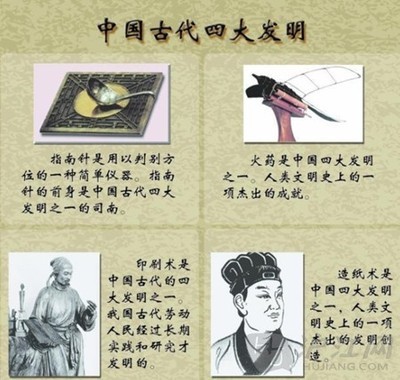 中国古代四大发明
指南针是用以判别方
位的一种简单仪器。指南
针的前身是中国古代四大
发明之一的司南。
火药是中国四大发明
之一。人类文明史上的一
项杰出的成就。
印刷术是
中国古代的四
大发明之一。
我国古代劳动
人民经过长期
实践和研究才
发明的。
造纸术是
中国四大发明
之一，人类文
明史上的一项
杰出的发明创
造。
HUJIANG.COM